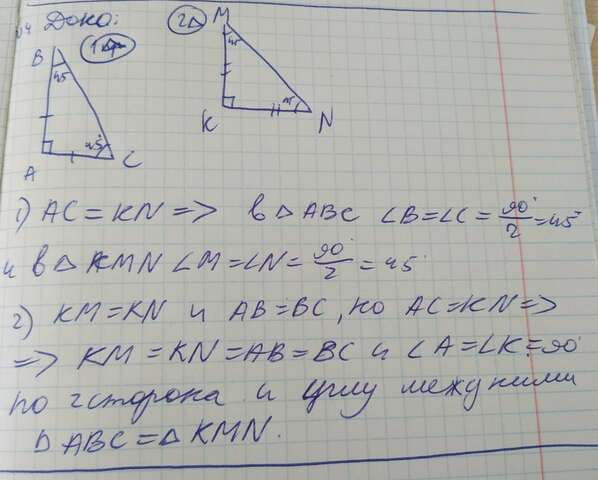 №4 Док-во:
1Δ
2Δ
B
45
45°
A
C
M
45
45
K
N
1) AC = KN => в Δ ABC ∠B=∠C = 90°/2 = 45°
и в Δ KMN ∠M=∠N= 90°/2 = 45°
2) KM=KN и AB=BC, но AC=KN=>
=> KM = KN=AB=BC и ∠A=∠K=90°
по 2 сторона и углу между ними
Δ ABC = Δ KMN.